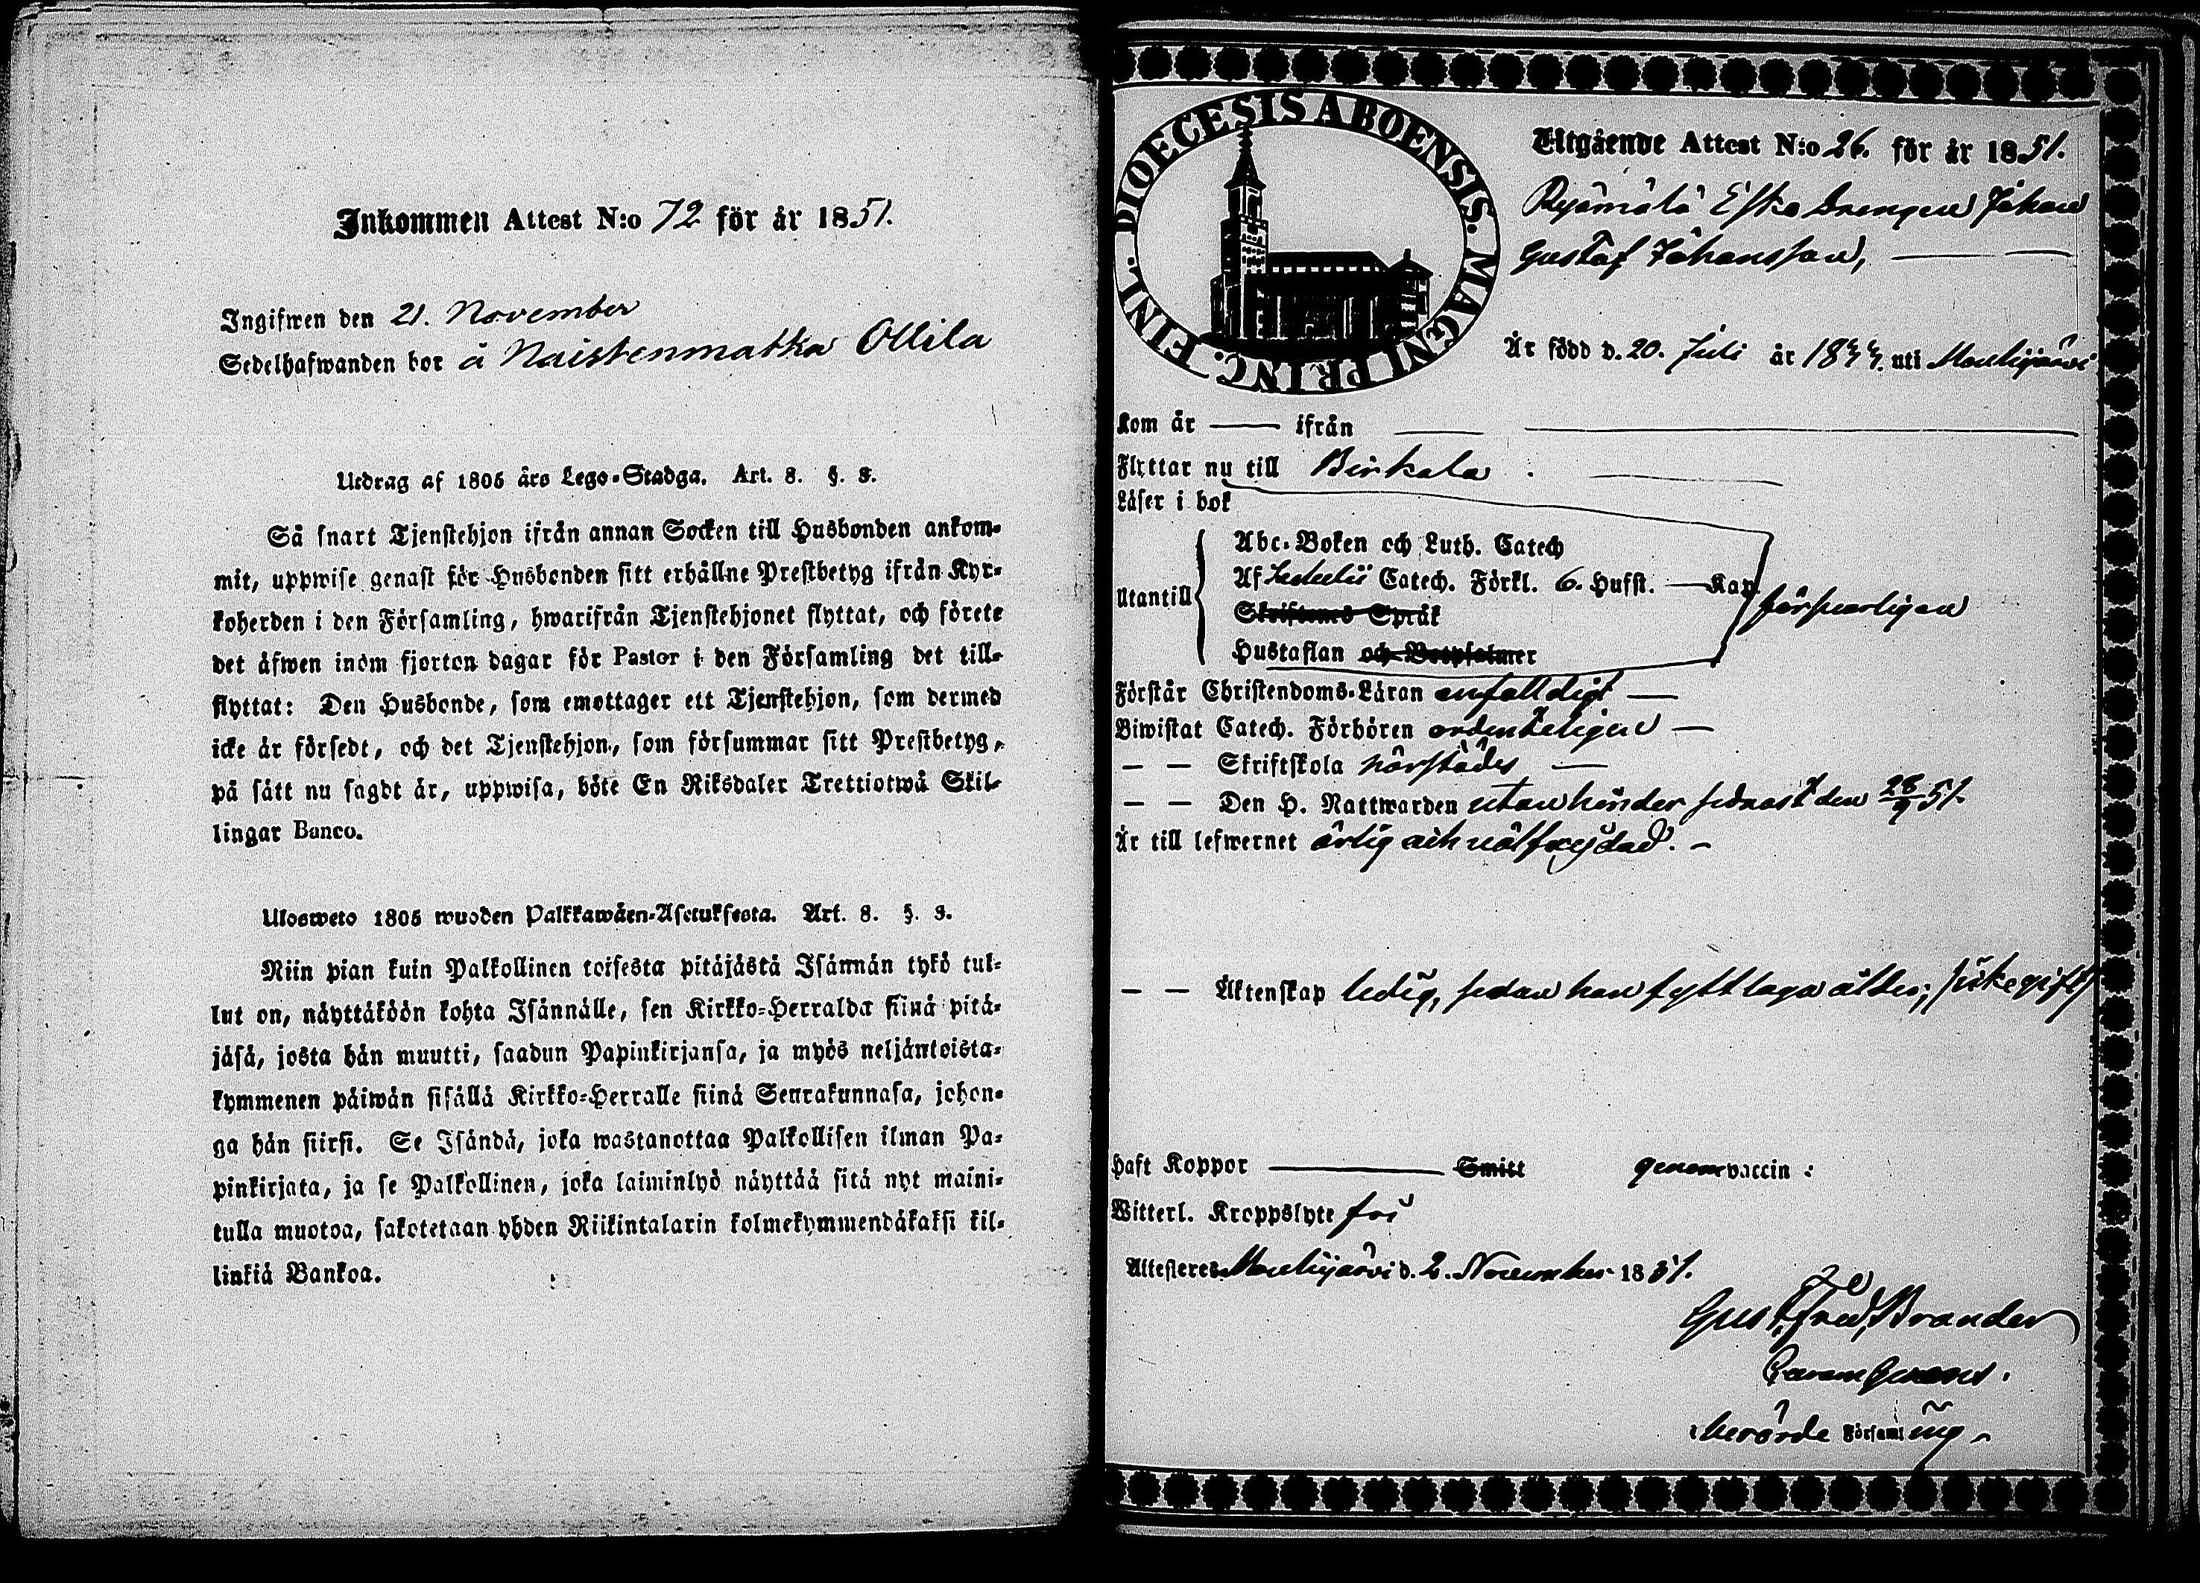 Inkommen Attest N:o 72 för år 1851.
Ingifwen den 21. November
Sedelhafwanden bor å Naistenmatka Ollila
Utdrag af 1805 års Lego-Stadga. Art. 8. §. 3.
Så snart Tjenstehjon ifrån annan Socken till Husbonden ankom-
mit, uppwise genast för Husbonden sitt erhållne Prestbetyg ifrån Kyr-
koherden i den Församling, hwarifrån Tjenstehjonet flyttat, och förete
det äfwen inom fjorton dagar för Pastor i den Församling det till-
flyttat: Den Husbonde, som emottager ett Tjenstehjon, som dermed
icke är försedt, och det Tjenstehjon, som försummar sitt Prestbetyg,
på sätt nu sagdt är, uppwisa, böte En Riksdaler Trettiotwå Skil-
lingar Banco.
Ulosweto 1805 wuoden Palkkawäen-Asetuksesta. Art. 8. §. 3.
Niin pian kuin Palkollinen toisesta pitäjästä Isännän tykö tul-
lut on, näyttäköön kohta Isännälle, sen Kirkko-Herralda siinä pitä-
jäsä, josta hän muutti, saadun Papinkirjansa, ja myös neljäntoista-
kymmenen päiwän sisällä Kirkko-Herralle siinä Seurakunnasa, johon-
ga hän siirsi. Se Isändä, joka wastanottaa Palkollisen ilman Pa-
pinkirjata, ja se Palkollinen, joka laiminlyö näyttää sitä nyt maini-
tulla muotoa, sakotetaan yhden Riikintalarin kolmekymmendäkaksi kil-
linkiä Bankoa.
DIOECESIS ABOENSIS. MAGNI PRINC. FINL.
Utgående Attest N:o 26. för år 1851.
Ryömälä Eske Drengen Johan
Gustaf Johansson,
Är född d. 20. Juli år 1833. uti Mouhijärvi
Kom år ifrån
Flyttar nu till Birkala.
Läser i bok
Abc-Boken och Luth. Catech
Utantill Af Catech. Förkl. 6. Hufst. Kap. försvarligen
Skriftenes Språk
Hustaflan och Botpsalmer
Förstår Christendoms-Läran enfalldigt
Biwistat Catech. Förhören ordenteligen
Skriftskola närstädes
Den H. Nattwarden utan hinder sednast den 28/9 51.
Är till lefwernet ärlig och välfrejdad.
Äktenskap ledig, sedan han fyllt laga ålder,
Haft Koppor Smitt genom vaccin:
Witterl. Kroppslyte fri
Attesteres Mouhijärvi d. 2. November 1851.
Gust. Fred. Brander
berörde Församling